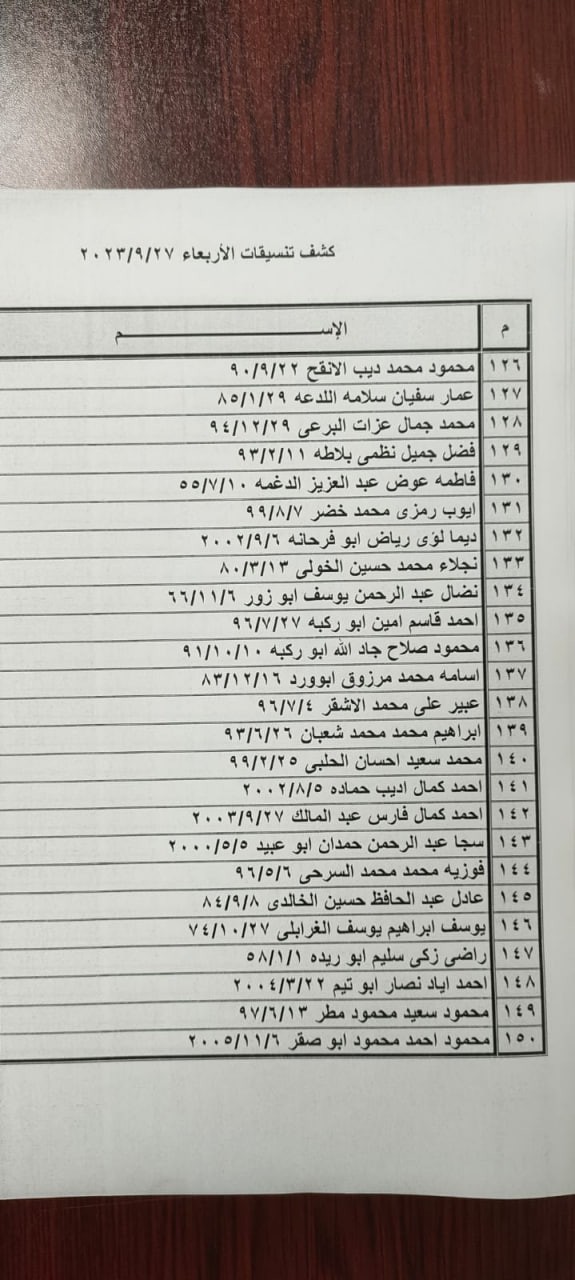 كشف تنسيقات الأربعاء ٢٠٢٣/٩/٢٧
م الإســـــــــــــــــم
١٢٦ محمود محمد ديب الانقح ٩٠/٩/٢٢
١٢٧ عمار سفيان سلامه اللدعه ٨٥/١/٢٩
١٢٨ محمد جمال عزات البرعى ٩٤/١٢/٢٩
١٢٩ فضل جميل نظمى بلاطه ٩٣/٢/١١
١٣٠ فاطمه عوض عبد العزيز الدغمه ٥٥/٧/١٠
١٣١ ايوب رمزى محمد خضر ٩٩/٨/٧
١٣٢ ديما لؤى رياض ابو فرحانه ٢٠٠٢/٩/٦
١٣٣ نجلاء محمد حسين الخولى ٨٠/٣/١٣
١٣٤ نضال عبد الرحمن يوسف ابو زور ٦٦/١١/٦
١٣٥ احمد قاسم امين ابو ركبه ٩٦/٧/٢٧
١٣٦ محمود صلاح جاد الله ابو ركبه ٩١/١٠/١٠
١٣٧ اسامه محمد مرزوق ابوورد ٨٣/١٢/١٦
١٣٨ عبير على محمد الاشقر ٩٦/٧/٤
١٣٩ ابراهيم محمد محمد شعبان ٩٣/٦/٢٦
١٤٠ محمد سعيد احسان الحلبى ٩٩/٢/٢٥
١٤١ احمد كمال اديب حماده ٢٠٠٢/٨/٥
١٤٢ احمد كمال فارس عبد المالك ٢٠٠٣/٩/٢٧
١٤٣ سجا عبد الرحمن حمدان ابو عبيد ٢٠٠٠/٥/٥
١٤٤ فوزيه محمد محمد السرحى ٩٦/٥/٦
١٤٥ عادل عبد الحافظ حسين الخالدى ٨٤/٩/٨
١٤٦ يوسف ابراهيم يوسف الغرابلى ٧٤/١٠/٢٧
١٤٧ راضى زكى سليم ابو ريده ٥٨/١/١
١٤٨ احمد اياد نصار ابو تيم ٢٠٠٤/٣/٢٢
١٤٩ محمود سعيد محمود مطر ٩٧/٦/١٣
١٥٠ محمود احمد محمود ابو صقر ٢٠٠٥/١١/٦